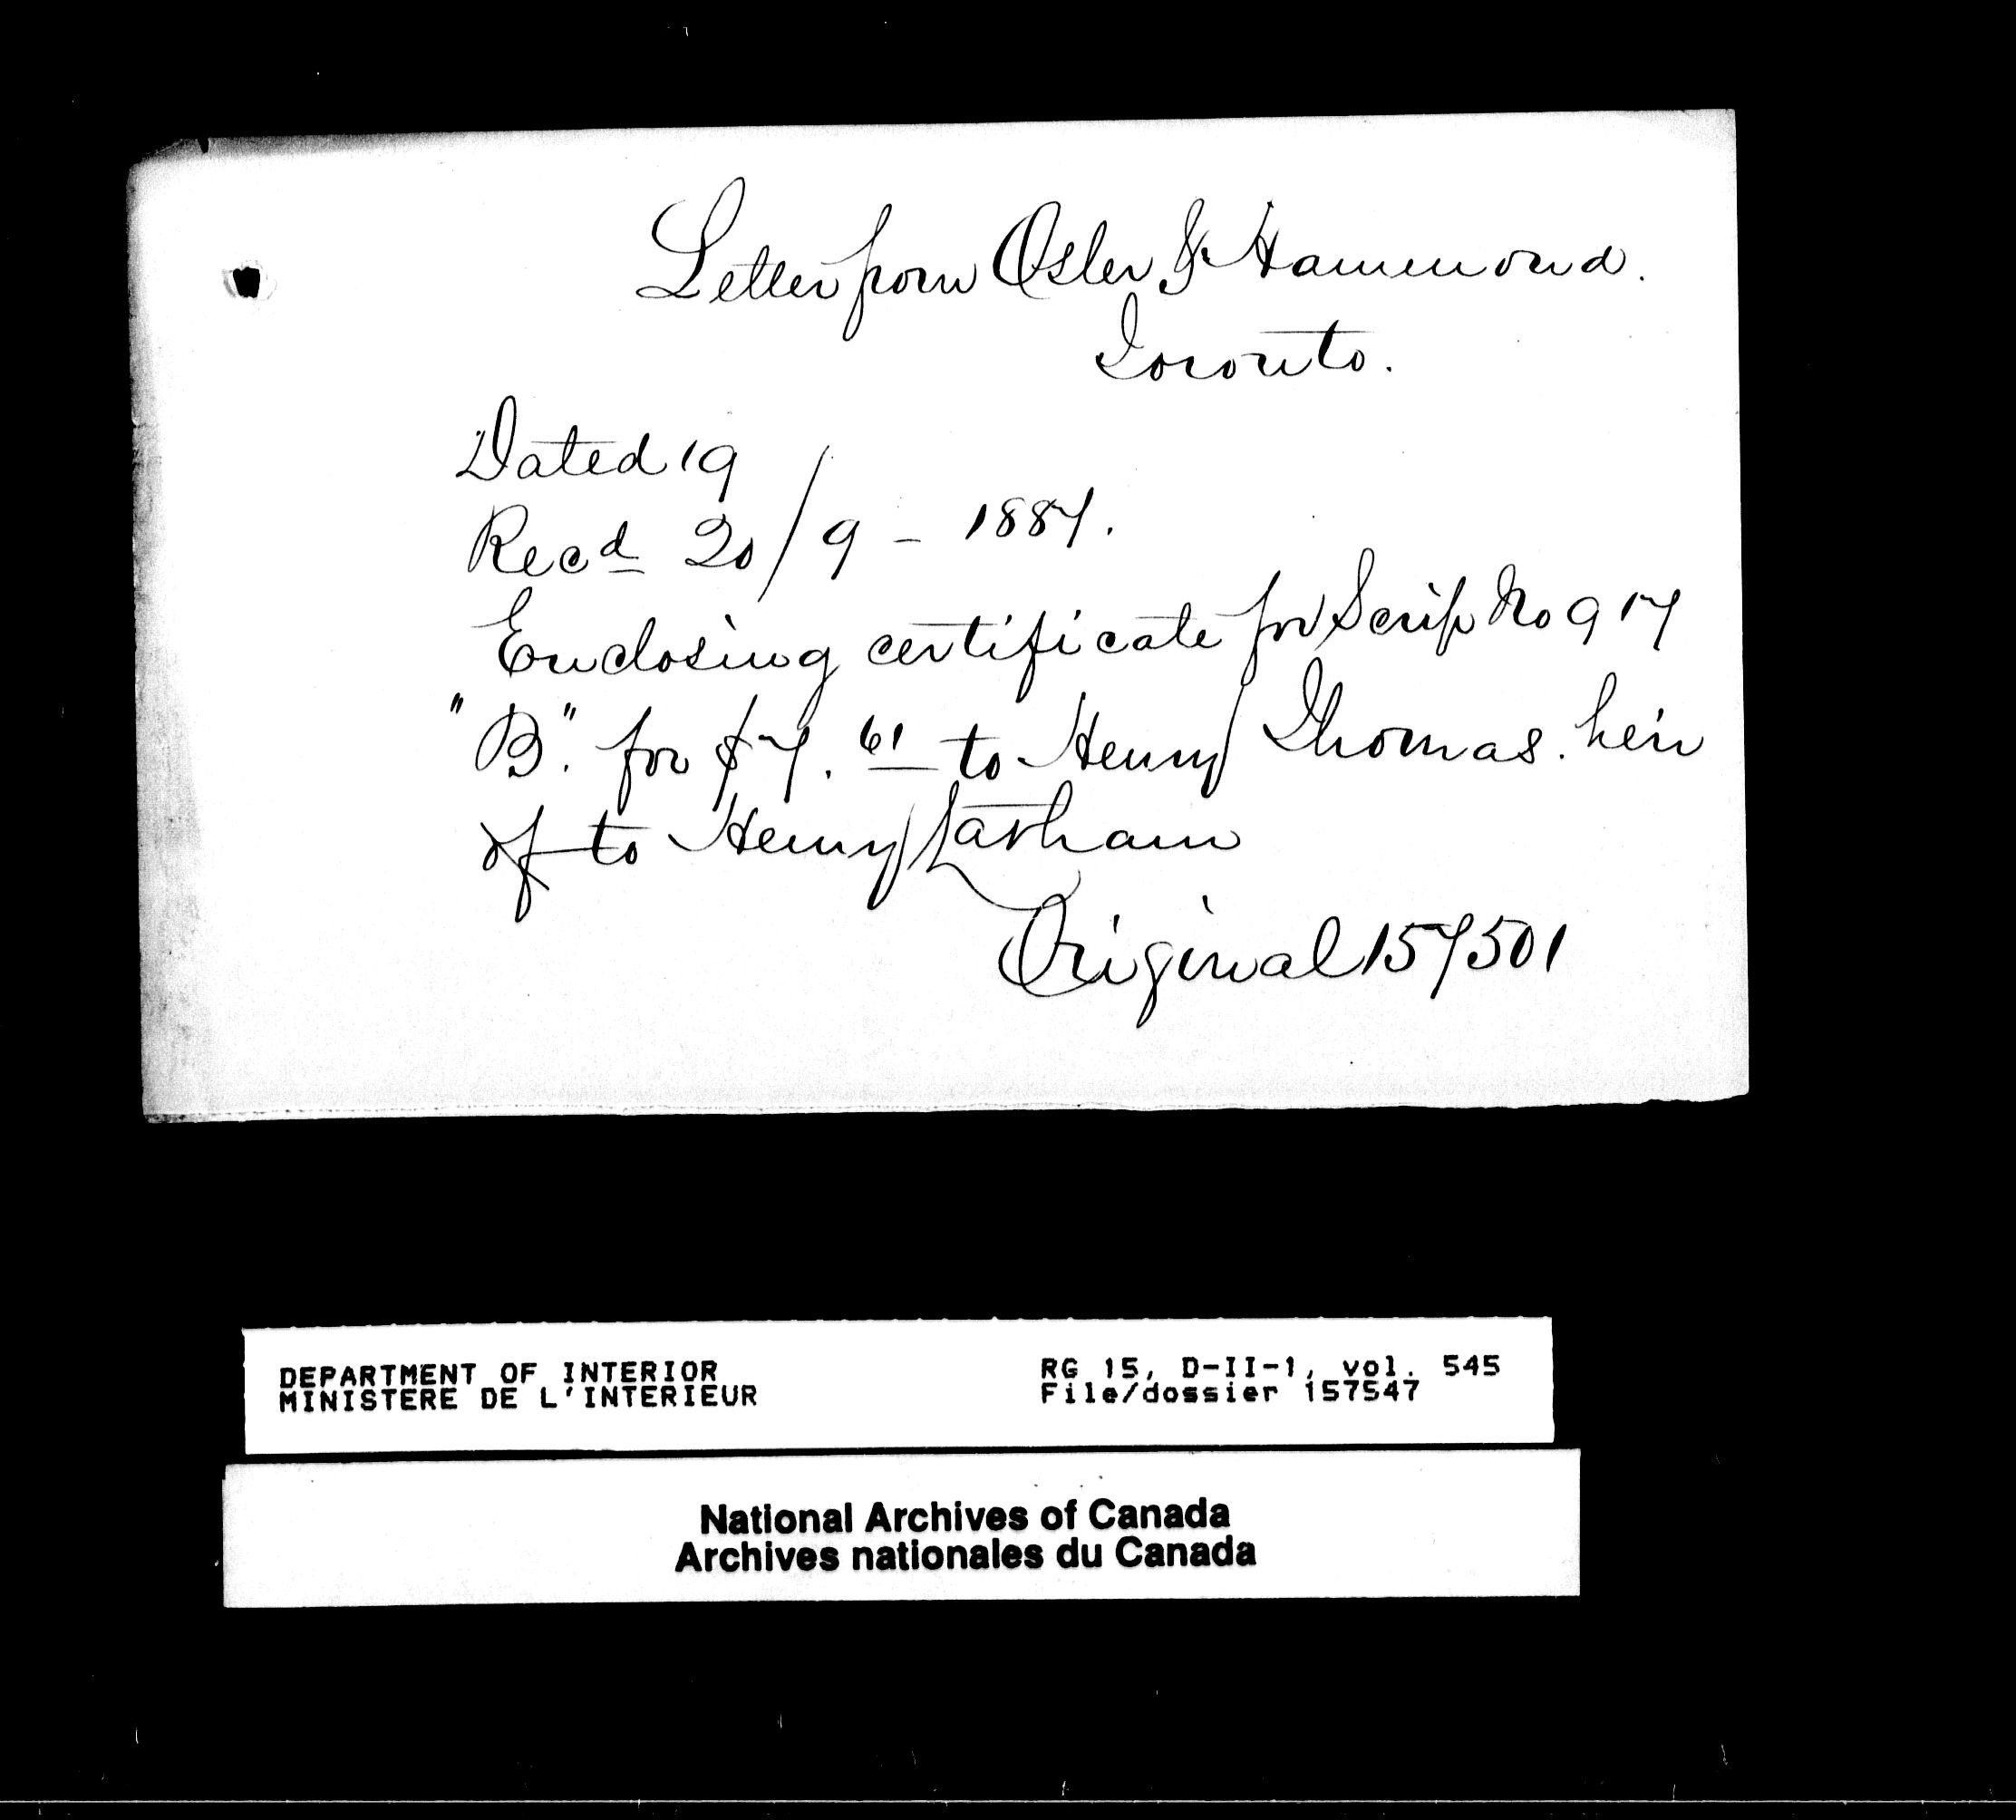 Letter from Osler & Hammond.
Toronto.
Dated 19
Recd 20 / 9 - 1887.
Enclosing certificate for Scrip No 917
"B". for $7. 61 to Henry Thomas. heir
of to Henry
Original 157501
DEPARTMENT OF INTERIOR
MINISTERE DE L'INTERIEUR
RG 15, D-II-1, vol. 545
File/dossier 157547
National Archives of Canada
Archives nationales du Canada